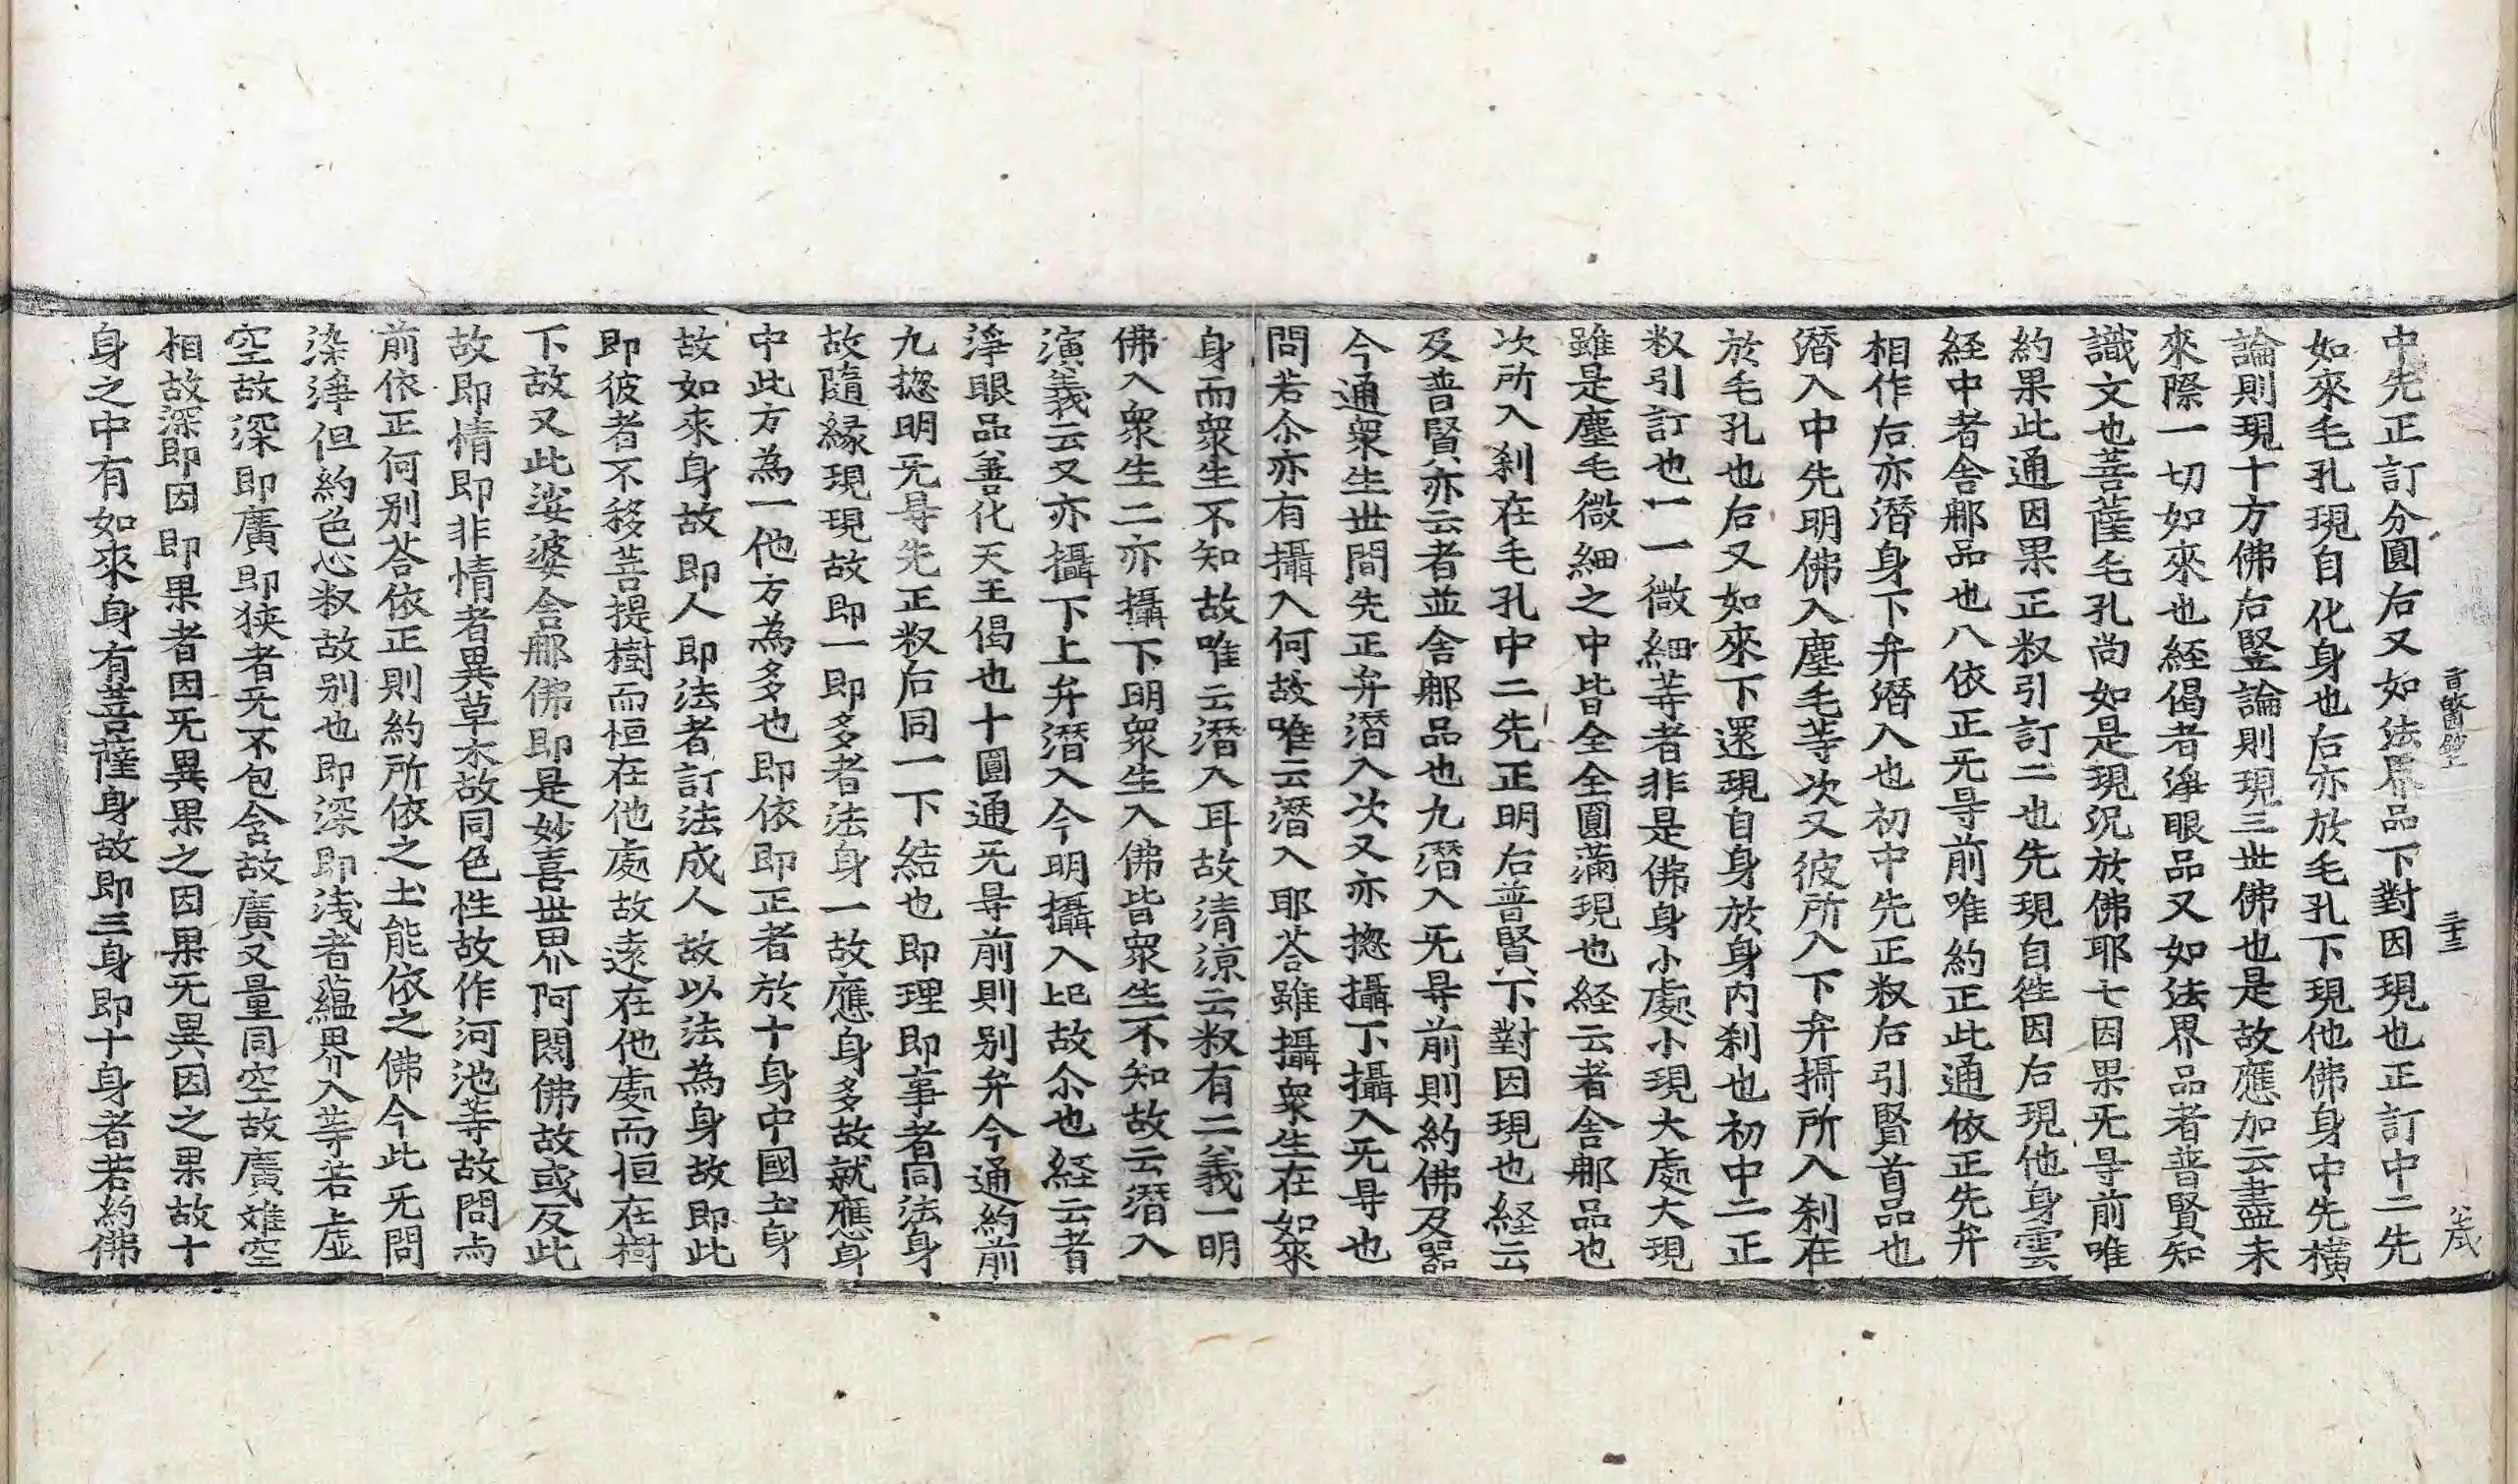 中先正訂分圓右又如法界品下對因現也正訂中二先
如來毛孔現自化身也右亦放毛孔下現他佛身中先橫
論則現十方佛右竪論則現三世佛也是故應加云盡未
來際一切如來也経偈者淨眼品又如法界品者普賢知
識文也菩薩毛孔尚如是現况放佛耶七因果旡㝵前唯
約果此通因果正叙引訂二也先現自徃因右現他身雲
経中者舍那品也八依正旡㝵前唯約正此通依正先弁
相作右亦潛身下弁潛入也初中先正叙右引賢首品也
潛入中先明佛入塵毛等次又彼所入下弁攝所入刹在
於毛孔也右又如來下還現自身於身內刹也初中二正
叙引訂也一一微細等者非是佛身小處小現大處大現
雖是塵毛微細之中皆全全圓滿現也経云者舍那品也
次所入刹在毛孔中二先正明右普賢下對因現也経云
及普賢亦云者並舍那品也九潛入旡㝵前則約佛及器
今通衆生世間先正弁潛入次又亦揔攝下攝入旡㝵也
問若尒亦有攝入何故唯云潛入耶荅雖攝衆生在如來
身而衆生不知故唯云潛入耳故清涼云叙有二義一明
佛入衆生二亦攝下明衆生入佛皆衆生不知故云潛入
演義云又亦攝下上弁潛入今明攝入比故尒也経云者
淨眼品善化天王偈也十圓通旡㝵前則別弁今通約前
九揔明旡㝵先正叙右同一下結也即理即事者同法身
故隨緣現現故即一即多者法身一故應身多故就應身
中此方為一他方為多也即依即正者於十身中國土身
故如來身故即人即法者訂法成人故以法為身故即此
即彼者不移菩提樹而恒在他處故遠在他處而恒在樹
下故又此娑婆舍那佛即是妙喜世界阿閦佛故或反此
故即情即非情者異草木故同色性故作河池等故問与
前依正何別荅依正則約所依之土能依之佛今此旡問
染淨但約色心叙故別也即深即浅者蘊界入等若虛
空故深即廣即狹者旡不包含故廣又量同空故廣難空
相故深即因即果者因旡異果之因果旡異因之果故十
身之中有如來身有菩薩身故即三身即十身者若約佛